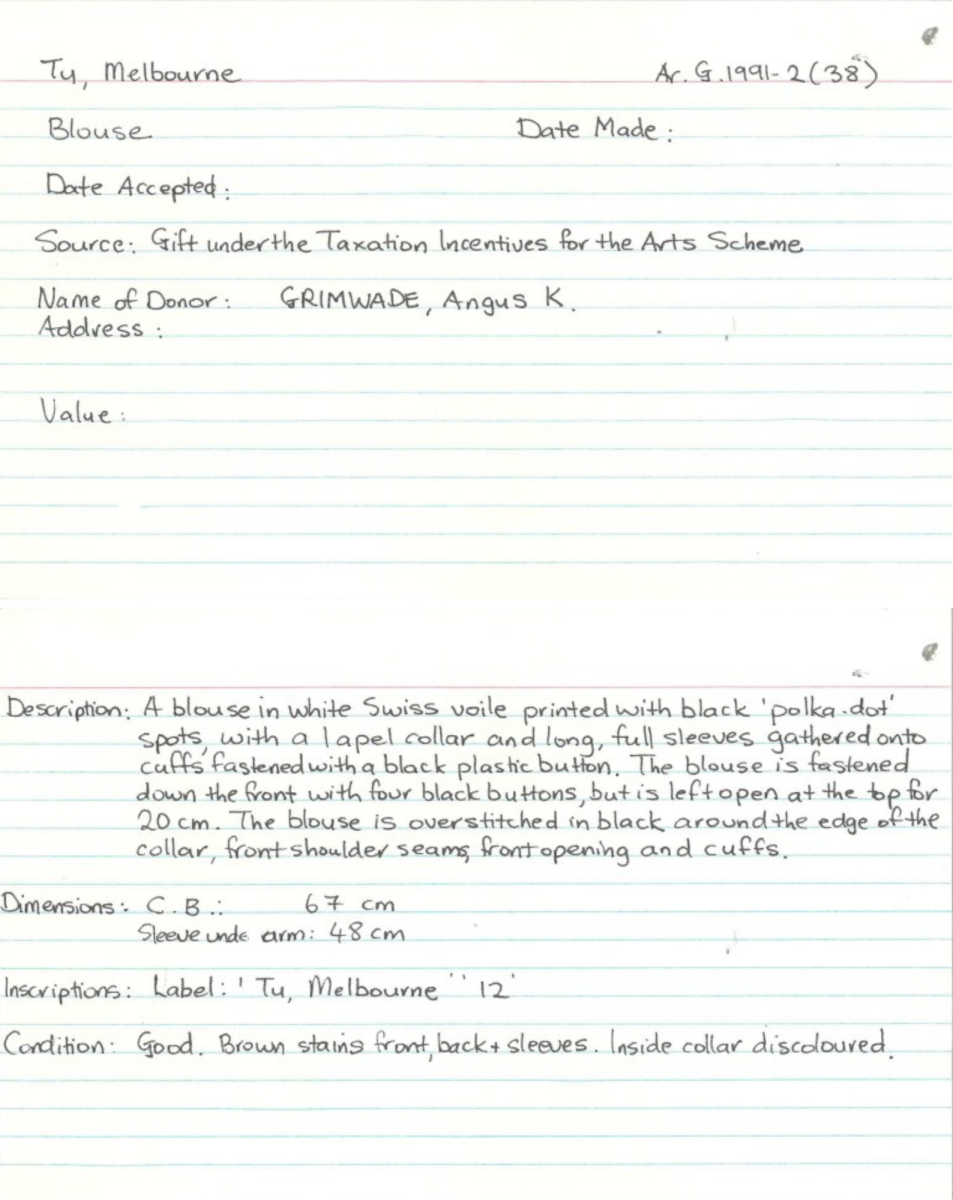 Ty, Melbourne Ar. G. 1991-2(38)
Blouse Date Made:
Date Accepted:
Source: Gift under the Taxation Incentives for the Arts Scheme
Name of Donor: GRIMWADE, Angus K.
Address:
Value:
Description: A blouse in white Swiss voile printed with black 'polka-dot'
spots, with a lapel collar and long, full sleeves gathered onto
cuffs fastened with a black plastic button. The blouse is fastened
down the front with four black buttons, but is left open at the top for
20 cm. The blouse is overstitched in black around the edge of the
collar, front shoulder seams, front opening and cuffs.
Dimensions: C.B.: 67 cm
Sleeve unde arm: 48 cm
Inscriptions: Label: 'Ty, Melbourne' '12'
Condition: Good. Brown stains front, back + sleeves. Inside collar discoloured.